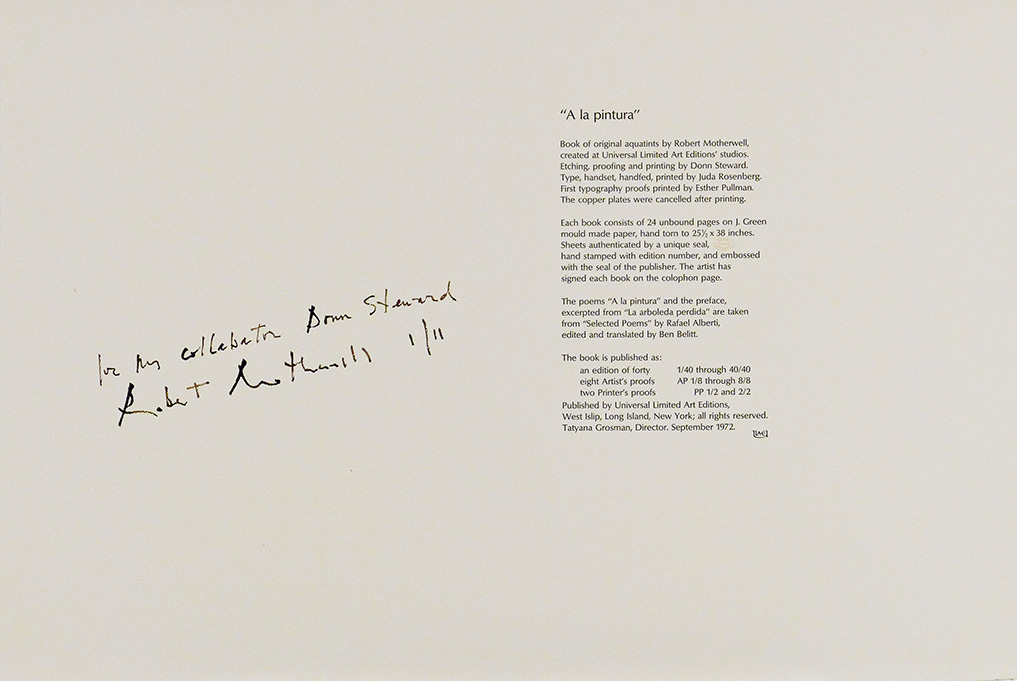 for my collabator Donn Steward
Robert Motherwell 1/11
"A la pintura"
Book of original aquatints by Robert Motherwell,
created at Universal Limited Art Editions' studios.
Etching, proofing and printing by Donn Steward.
Type, handset, handfed, printed by Juda Rosenberg.
First typography proofs printed by Esther Pullman.
The copper plates were cancelled after printing.
Each book consists of 24 unbound pages on J. Green
mould made paper, hand torn to 25½ x 38 inches.
Sheets authenticated by a unique seal,
hand stamped with edition number, and embossed
with the seal of the publisher. The artist has
signed each book on the colophon page.
The poems "A la pintura" and the preface,
excerpted from "La arboleda perdida" are taken
from "Selected Poems" by Rafael Alberti,
edited and translated by Ben Belitt.
The book is published as:
an edition of forty 1/40 through 40/40
eight Artist's proofs AP 1/8 through 8/8
two Printer's proofs PP 1/2 and 2/2
Published by Universal Limited Art Editions,
West Islip, Long Island, New York; all rights reserved.
Tatyana Grosman, Director. September 1972.